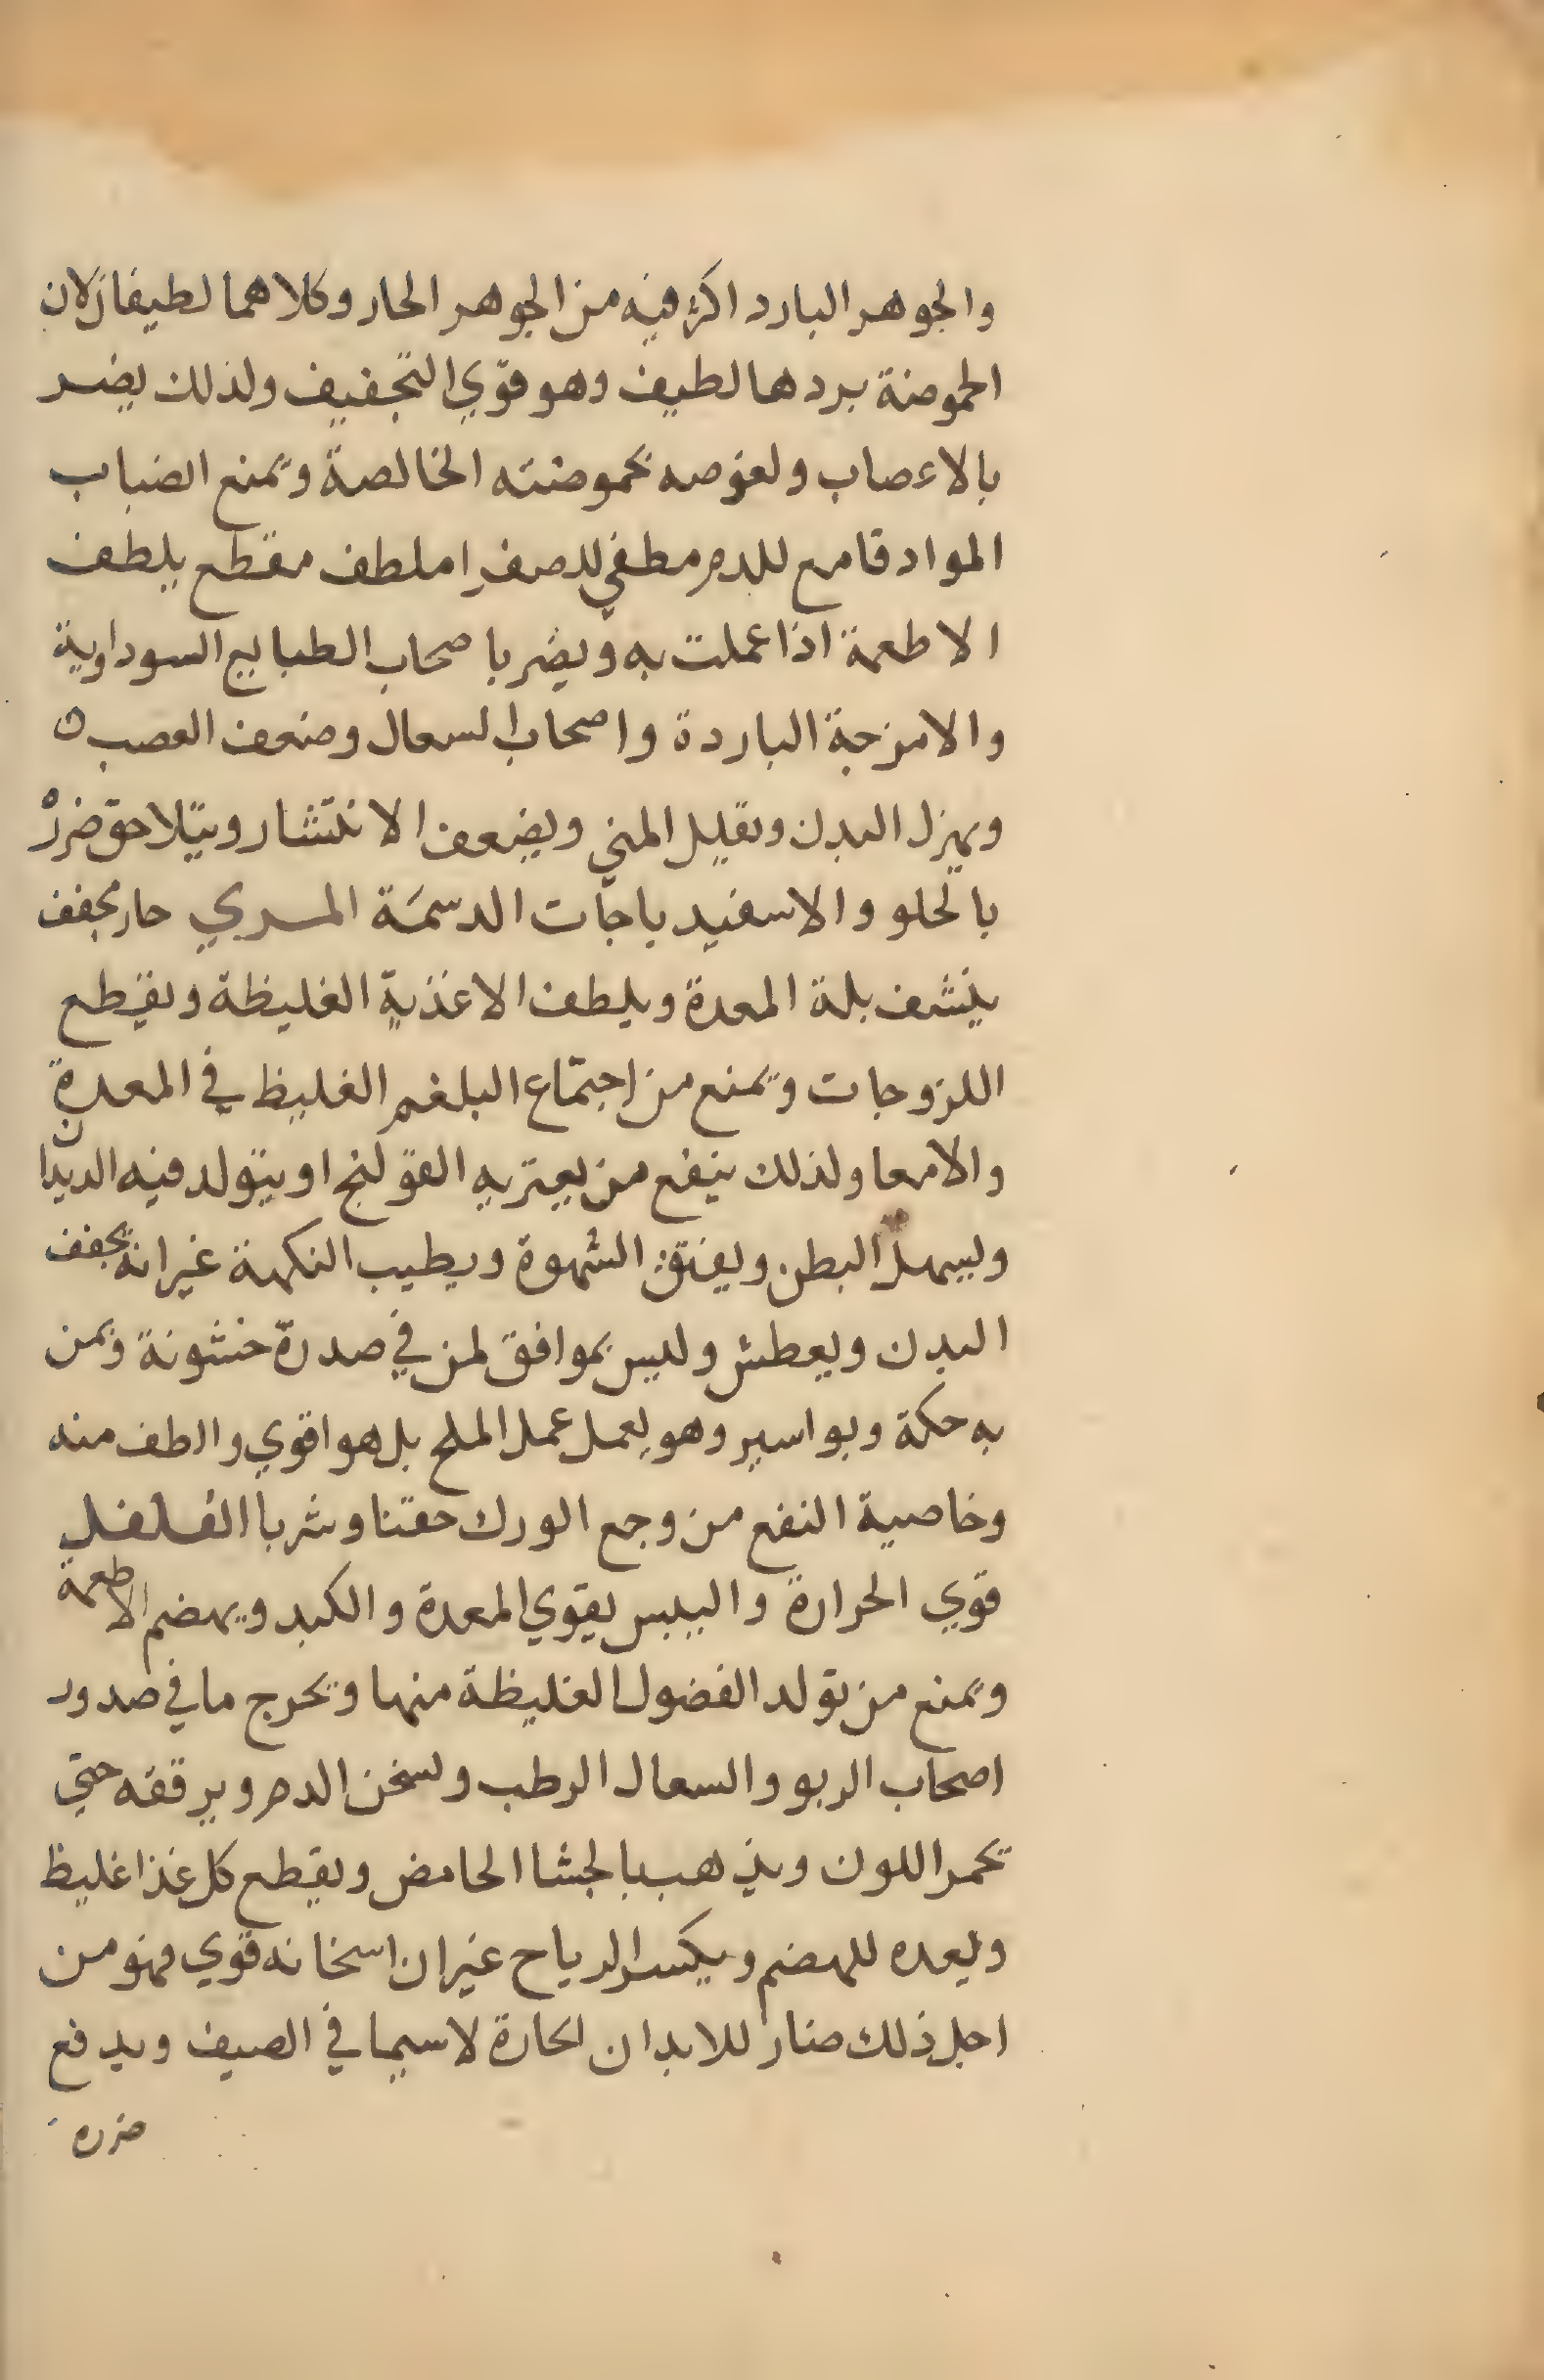 والجوهر البارد اكثر فيه من الجوهر الحار وكلاهما لطيفان لان
الحموضة بردها لطيف وهو قوّي التجفيف ولذلك يضر
بالاعصاب ولغوصه بحموضته الخالصة ويمنع انضباب
المواد قامع للدم مطفي للصفرا ملطف مقطع يلطف
الاطعمة اذا عملت به ويضر باصحاب الطبايع السوداوية
والامزجة الباردة واصحاب السعال وضعف العصب
ويهزل البدن وتقليل المني ويضعف الانتشار ويتلاحق ضرره
بالحلو والاسفيد باجات الدسمَة المري حار مجفف
ينشف بلة المعدة ويلطف الاغذية الغليظة ويقطع
اللزوجات ويمنع من اجتماع البلغم الغليظ في المعدة
والامعا ولذلك ينفع من يعتريه القولنج او يتولد فيه الديدان
ويسهل البطن ويفتق الشهوة ويطيب النكهة غير انه يجفف
البدن ويعطش وليس بموافق لمن في صدره خشونة ولمن
به حكة وبواسير وهو يعمل عمل الملح بل هو اقوي والطف منه
وخاصية النفع من وجع الورك حقنا وشربا الفلفل
قوي الحرارة واليبس يقوي المعدة والكبد ويهضم الاطعمة
ويمنع من تولد الفضول الغليظة منها ويخرج ما في صدور
اصحاب الربو والسعال الرطب ويسخن الدم ويرققه حتي
يحمر اللون ويذهب بالجشا الحامض ويقطع كل غذا غليظ
ويعده للهضم ويكسر الرياح غير ان اسخانه قوي فهو من
اجل ذلك ضار للابدان الحارة لاسيما في الصيف ويدفع
ضرره